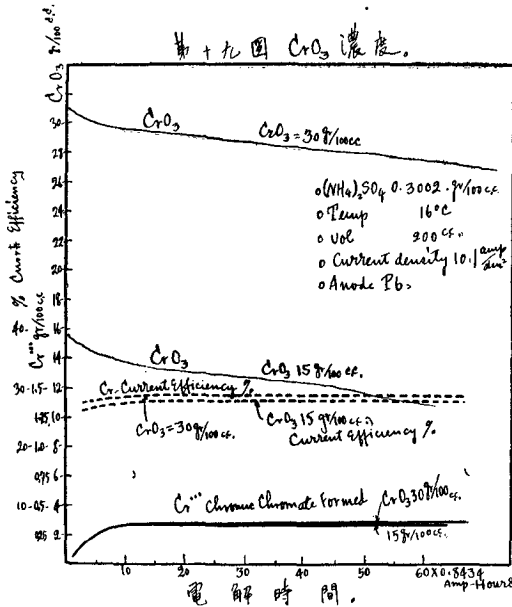 第十九圖 CrO3 濃度.
CrO3 gr/100 cc.
% Current Efficiency
Cr''' gr/100cc
30
28
26
24
22
20
18
40- 16
14
30-1.5- 12
1.25 10
20-1.0- 8
0.75 6
10-0.5- 4
0.25 2
CrO3
CrO3=30gr/100cc
o(NH4)2SO4 0.3002.gr/100cc.
o Temp 16°C
o Vol 900cc.
o Current density 10.1 amp/dm²
o Anode Pb.
CrO3
CrO3 15gr/100cc.
Cr-Current Efficiency %
CrO3=30gr/100cc.
CrO3 15gr/100cc.
Current Efficiency %
Cr''' Chromic Chromate Formed
CrO3 30gr/100cc.
15gr/100cc.
10 20 30 40 50 60X0.8434
Amp-Hours
電解時間.